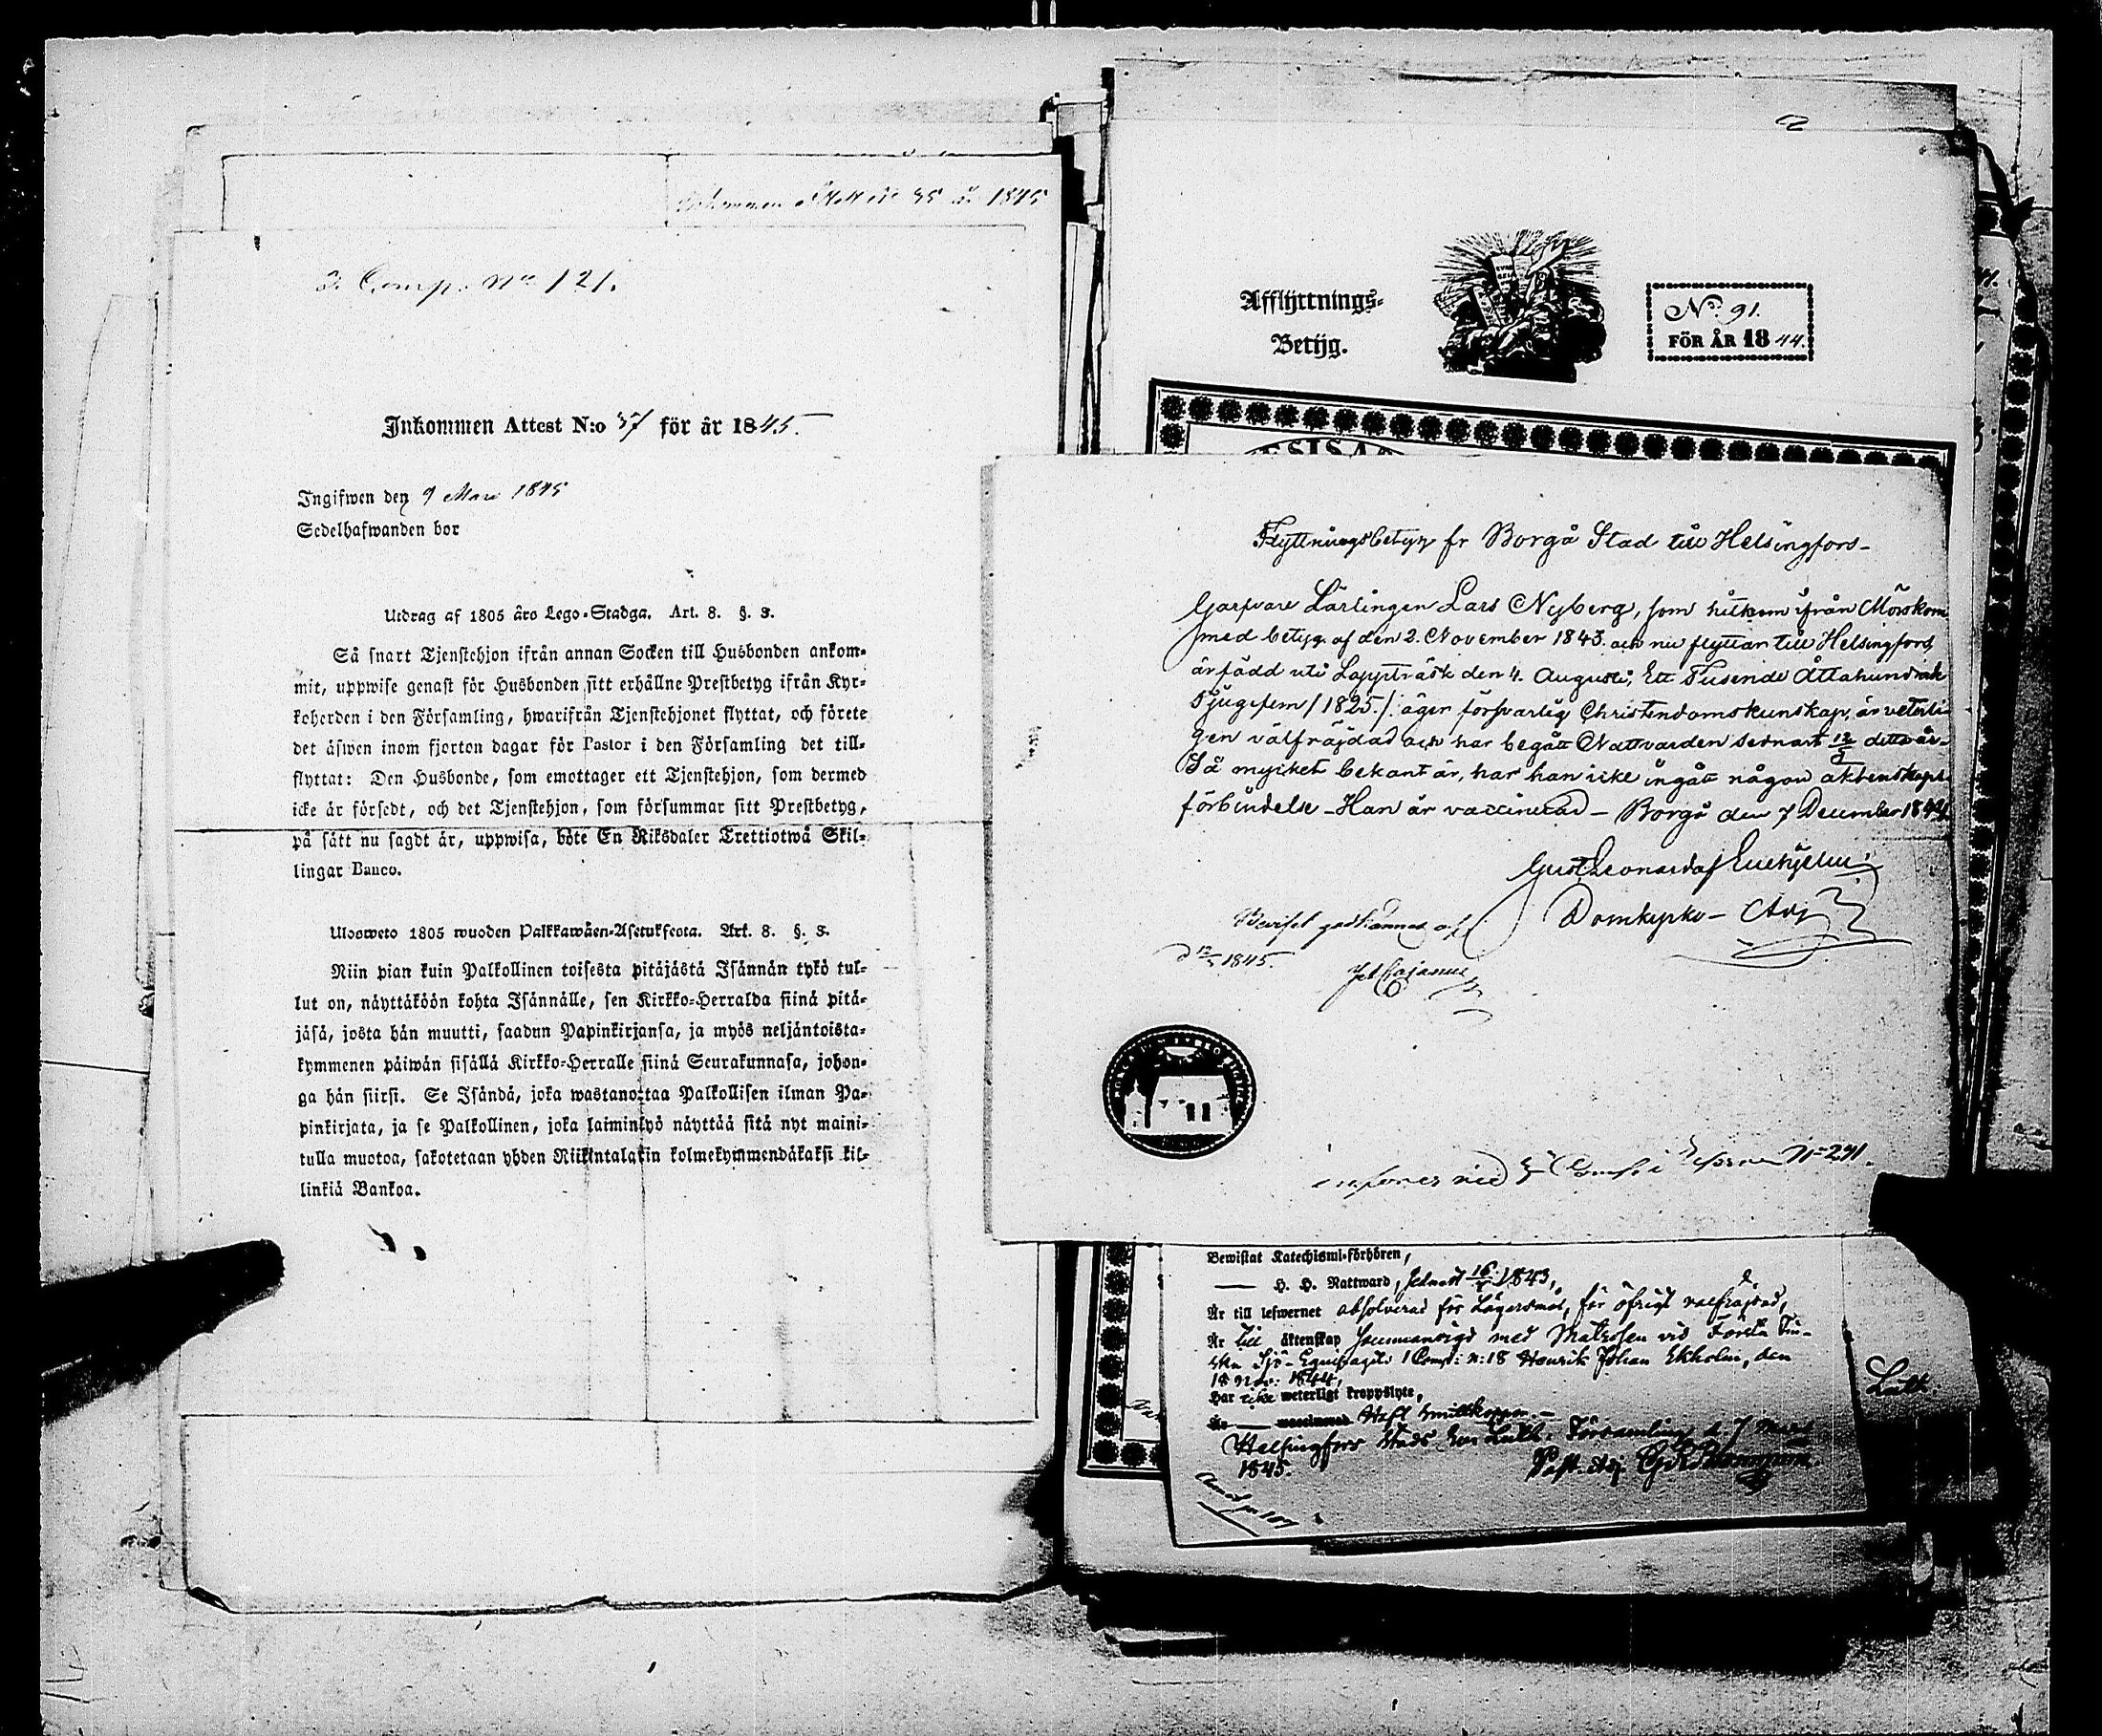 Inkommen Attest No 35 år 1845
2. Comp. No 121.
Inkommen Attest N:o 37 för år 1845.
Ingifwen den 9 Mars 1845
Sedelhafwanden bor
Utdrag af 1805 års Lego-Stadga. Art. 8. §. 3.
Så snart Tjenstehjon ifrån annan Socken till Husbonden ankom-
mit, uppwise genast för Husbonden sitt erhållne Prestbetyg ifrån Kyr-
koherden i den Församling, hwarifrån Tjenstehjonet flyttat, och förete
det äfwen inom fjorton dagar för Pastor i den Församling det till-
flyttat: Den Husbonde, som emottager ett Tjenstehjon, som dermed
icke är försedt, och det Tjenstehjon, som försummar sitt Prestbetyg,
på sätt nu sagdt är, uppwisa, böte En Riksdaler Trettiotwå Skil-
lingar Banco.
Ulosweto 1805 wuoden Palkkawäen-Asetuksesta. Art. 8. §. 3.
Niin pian kuin Palkollinen toisesta pitäjästä Isännän tykö tul-
lut on, näyttäköön kohta Isännälle, sen Kirkko-Herralda siinä pitä-
jäsä, josta hän muutti, saadun Papinkirjansa, ja myös neljäntoista-
kymmenen päiwän sisällä Kirkko-Herralle siinä Seurakunnasa, johon-
ga hän siirsi. Se Isändä, joka wastanottaa Palkollisen ilman Pa-
pinkirjata, ja se Palkollinen, joka laiminlyö näyttää sitä nyt maini-
tulla muotoa, sakotetaan yhden Riikintalarin kolmekymmendäkaksi kil-
linkiä Bankoa.
Afflyttnings-
Betyg.
No. 91.
FÖR ÅR 1844.
Flyttningsbetyg fr Borgå Stad till Helsingfors-
Garfvare Lärlingen Lars Nyberg, som hitkom ifrån Mörskom
med betyg af den 2. November 1843. och nu flyttar till Helsingfors,
är född uti Lappträsk den 4. Augusti, Ett Tusende Åttahundrade
Tjugefem /1825./. äger försvarlig Christendomskunskap, är veterli-
gen välfräjdad och har begått Nattvarden sednast detta år-
Så mycket bekant är, har han icke ingått någon äktenskaps
förbindelse - Han är vaccinerad - Borgå den 7 December 1844.
Gust. Leonard af Enehjelm
Domkyrko- Adj
Beviset godkännes af
1845.
Cajanus
Comp. No 291.
Bewistat Katechismi-förhören,
H. H. Nattward, sednast 1843,
Är till lefwernet absolverad för Lägersmål, för öfrigt välfräjdad,
Är till äktenskap sammanvigd med Matrosen vid Första Fin-
ska Sjö-Equipaget 1 Comp: n:18 Henrik Johan Ekholm, den
18 1844,
Har icke weterligt kroppslyte,
Är vaccinerad Haft smittkoppor.-
Helsingfors Stads Ev. Luth. Församling d. 7 Mars
1845. Past. Adj.
Luth.